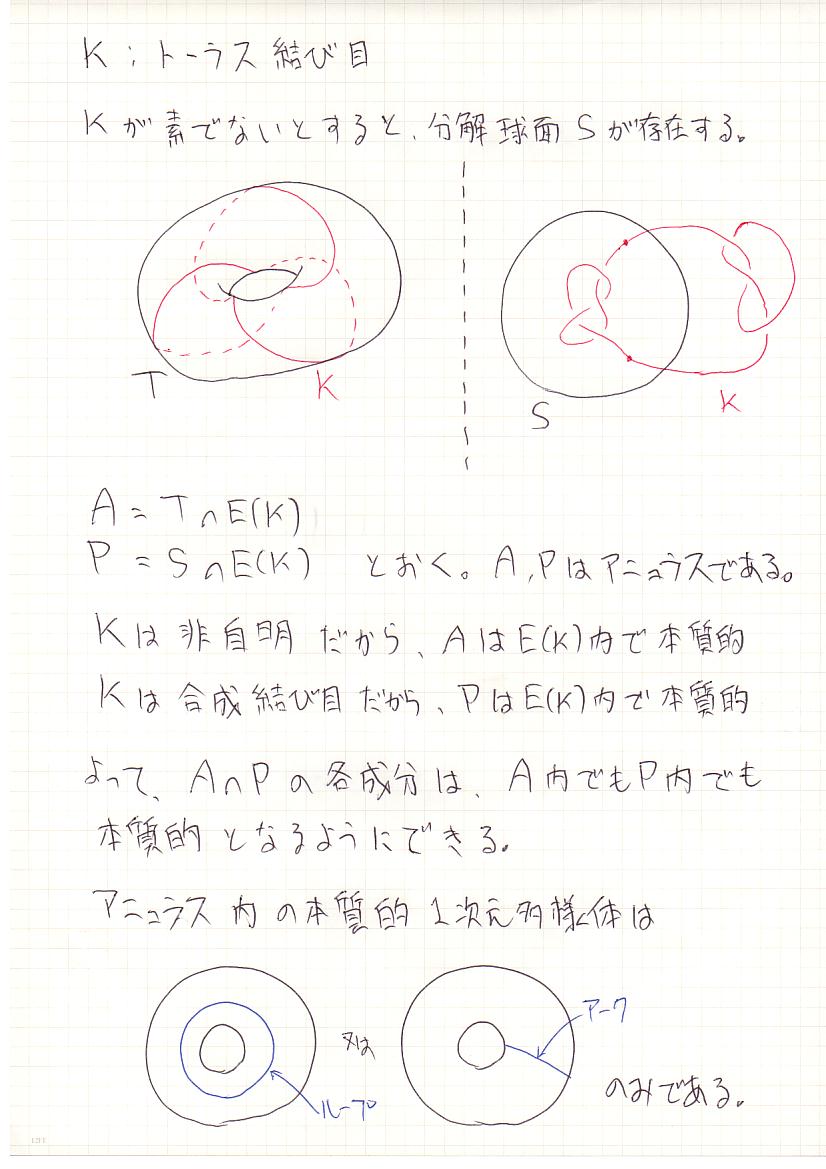 K:トーラス結び目
Kが素でないとすると、分解球面Sが存在する。
T
K
S
K
A = T∩E(K)
P = S∩E(K) とおく。A,Pはアニュラスである。
Kは非自明だから、AはE(K)内で本質的
Kは合成結び目だから、PはE(K)内で本質的
よって、A∩Pの各成分は、A内でもP内でも
本質的となるようにできる。
アニュラス内の本質的1次元多様体は
ループ
又は
アーク
のみである。